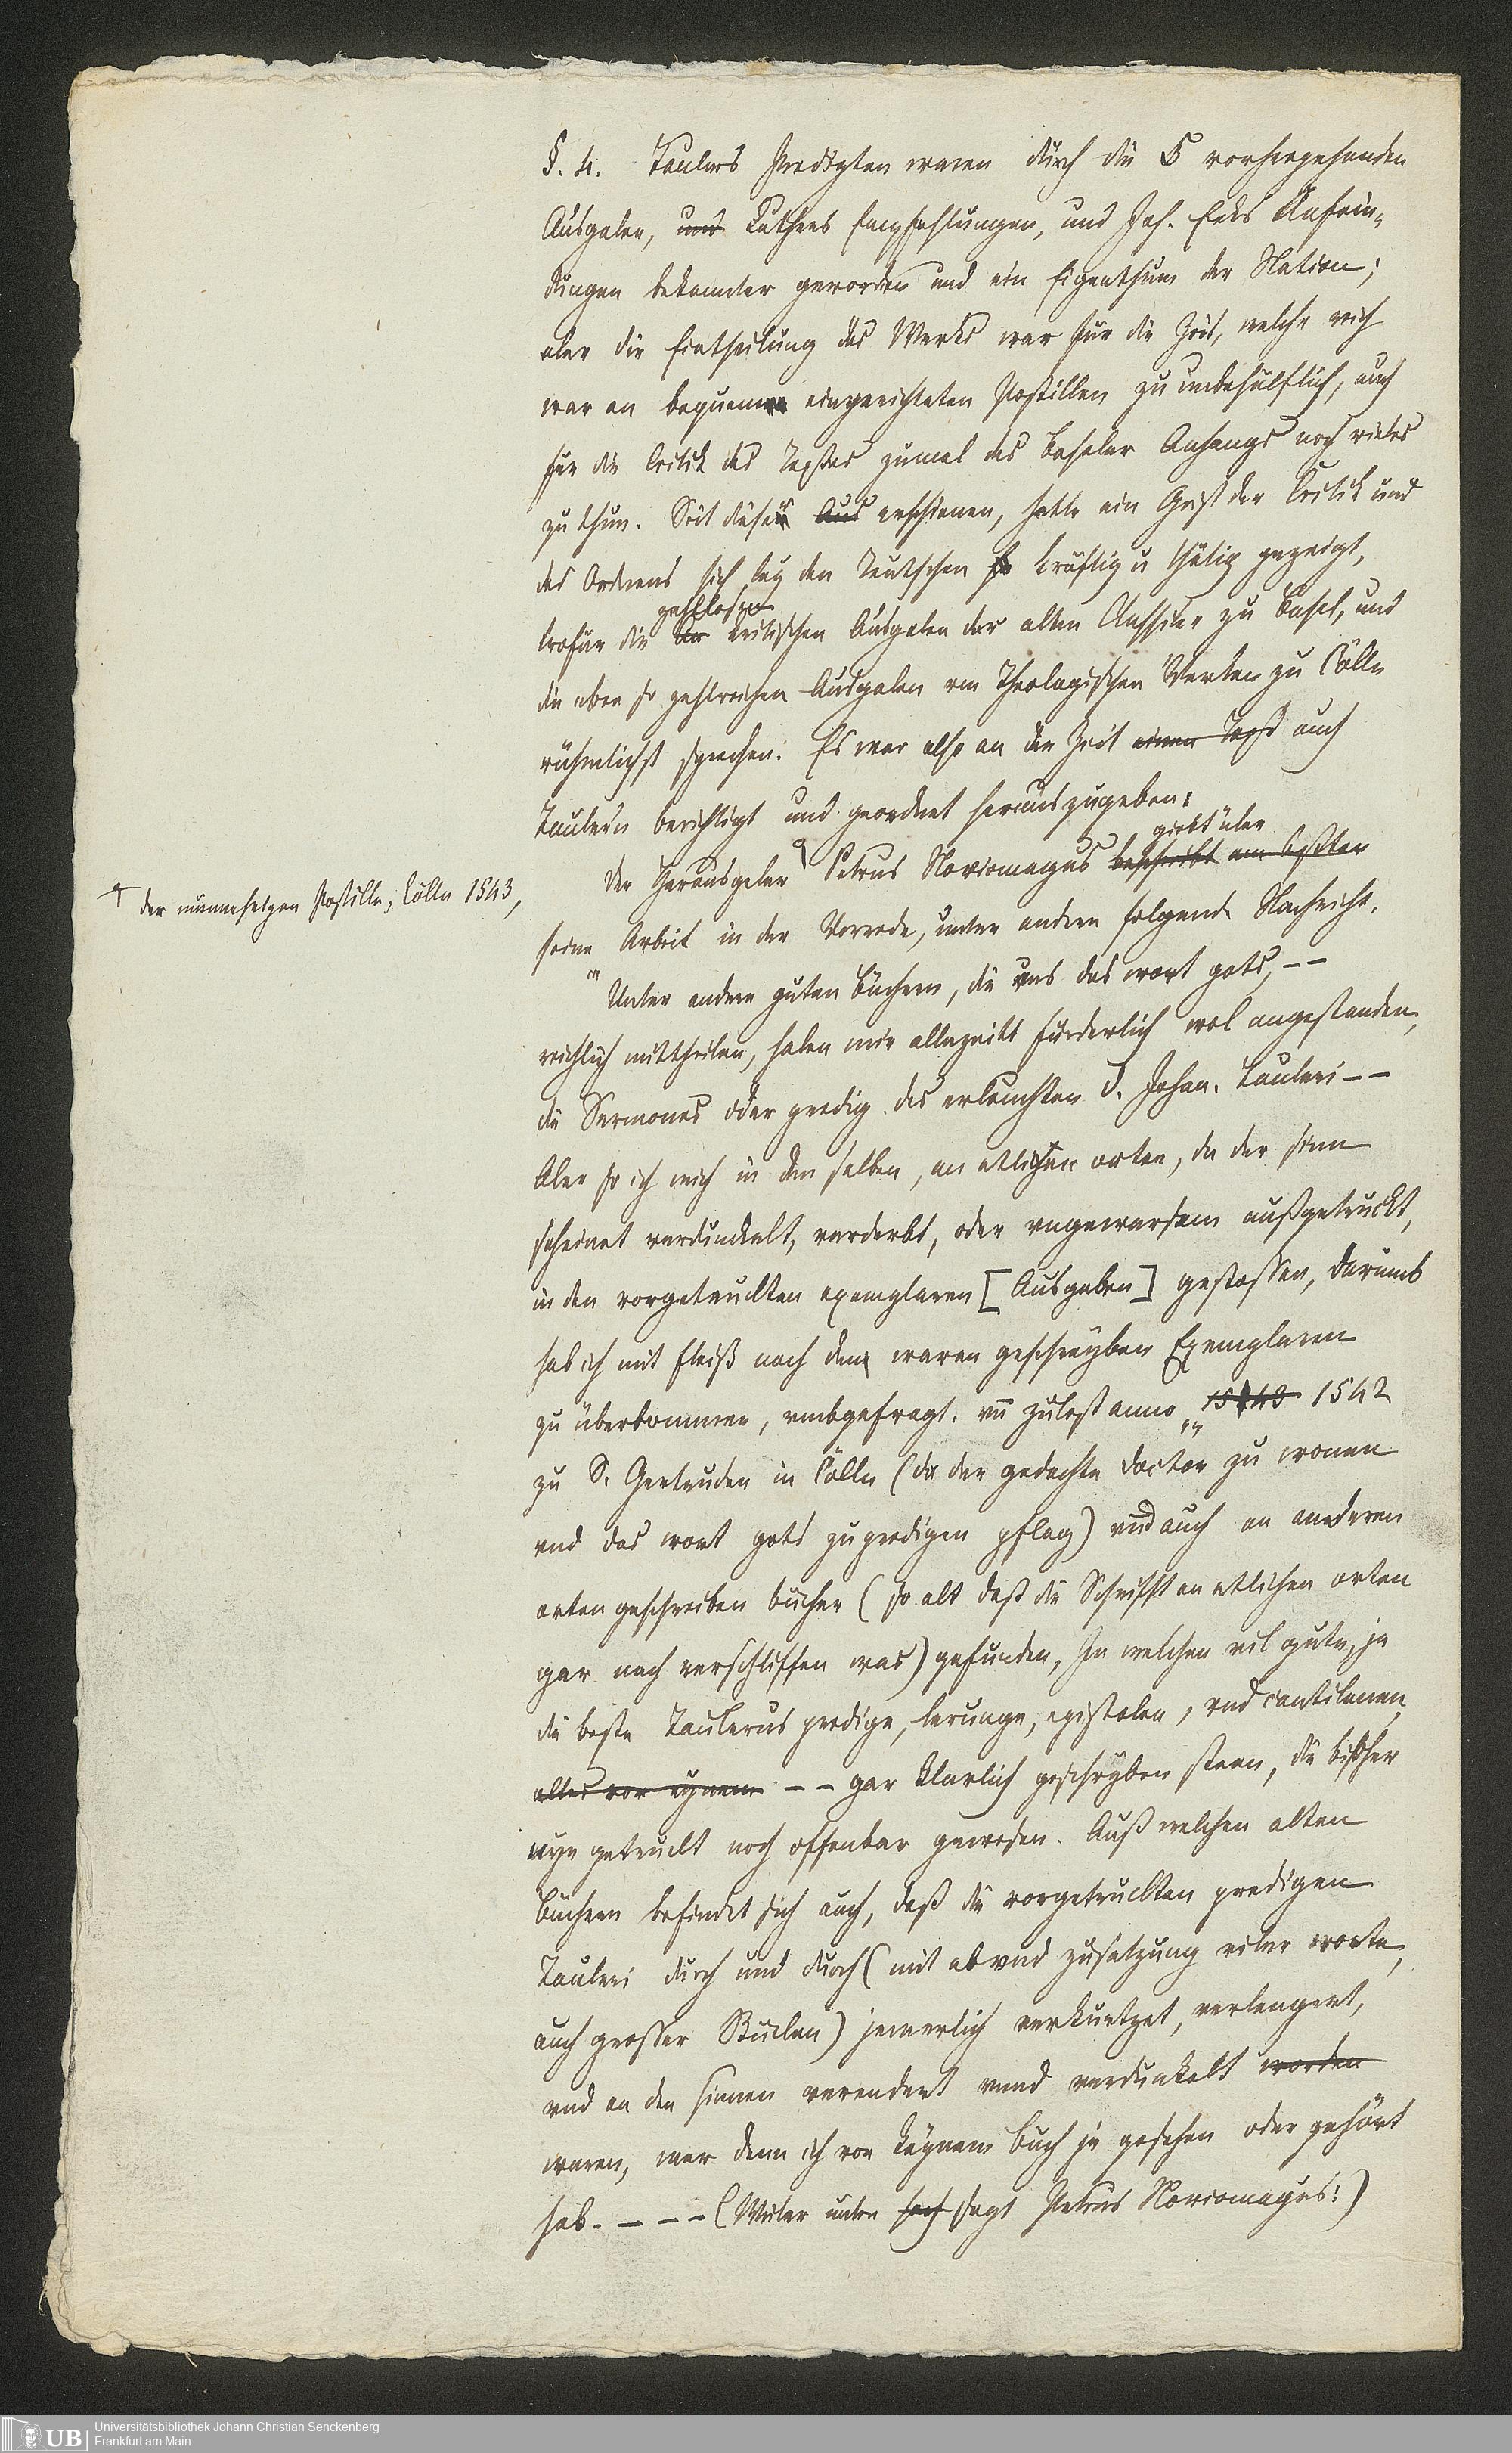 §. 4. Taulers Predigten waren durch die 5 vorhergehenden
Ausgaben, und Luthers Empfehlungen, und Joh. Ecks Anfein-
dungen bekannter geworden und ein Eigenthum der Nation;
aber die Eintheilung des Werks war für die Zeit, welche reich
war an bequem eingerichteten Postillen zu unbehülflich, auch
für die Critik des Textes zumal des Baseler Anhangs noch vieles
zu thun. Seit diese Aus erschienen, hatte ein Geist der Critik und
des Ordnens sich bey den Teutschen so kräftig u thätig gezeigt,
zahllosen
wofür die kritischen Ausgaben der alten Classiker zu Basel, und
die eben so zahlreichen Ausgaben von Theologischen Werken zu Cölln
rühmlichst sprechen. Es war also an der Zeit einen Text auch
Taulern berichtigt und geordnet herauszugeben.
giebt über
Der Herausgeber Petrus Noviomagus beschreibt am besten
der nunmehrigen Postille, Cölln 1543,
seine Arbeit in der Vorrede, unter andern folgende Nachricht.
"Unter andern guten Büchern, die uns das wort gots, --
reichlich mittheilen, haben mir allezeitt fürderlich wol angestanden,
die Sermones oder predig des erleuchten D. Johan. Tauleri --
Aber so ich mich in den selben, an etlichen orten, da der sinn
scheinet verdunckelt, verderbt, oder ungewarsam außgetruckt,
in den vorgetruckten exemplaren [Ausgaben] gestossen, darumb
hab ich mit fleiß nach den waren geschryben Exemplaren
zu überkommen, umbgefragt. vn zulest anno 1543 1542
zu S. Gertruden in Cölln (da der gedachte doctor zu wonen
und das wort gots zupredigen pflag) und auch an anderen
orten geschreiben bücher (so alt daß die Schrifft an etlichen orten
gar nach verschlissen was) gefunden, In welchen vil gute, ja
die beste Taulerus predige, lerunge, epistolen, und cantilenen,
alles vor eynem -- gar klarlich geschryben steen, die bißher
nye getruckt noch offenbar gewesen. Auß welchen alten
büchern befindet sich auch, daß die vorgetruckten predigen
Tauleri durch und durch (mit ab vnd zusatzung viler worte,
auch grosser Stücken) jemerlich verkurtzet, verlengert,
vnd an den sinnen verendert vnnd verdunkelt worden
waren, mer denn ich von keynem buch je gesehen oder gehört
hab. --- (Weiter unten sagt Petrus Noviomagus:)
Universitätsbibliothek Johann Christian Senckenberg
Frankfurt am Main
UB